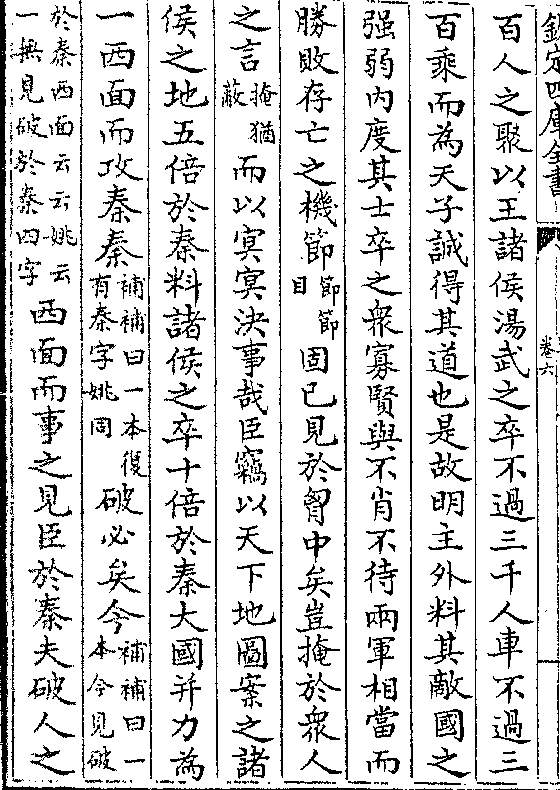 欽定四庫全書
卷六
百人之聚以王諸侯湯武之卒不過三千人車不過三
百乘而為天子誠得其道也是故明主外料其敵國之
强弱内度其士卒之衆寡賢與不肖不待兩軍相當而
勝敗存亡之機節節節目固已見於胷中矣豈掩於衆人
之言掩猶蔽而以冥冥決事哉臣竊以天下地圖案之諸
侯之地五倍於秦料諸侯之卒十倍於秦大國并力為
一西面而攻秦秦補補曰一本復有秦字姚同破必矣今補補曰一本今見破
於秦西面云云姚云一無見破於秦四字西面而事之見臣於秦夫破人之